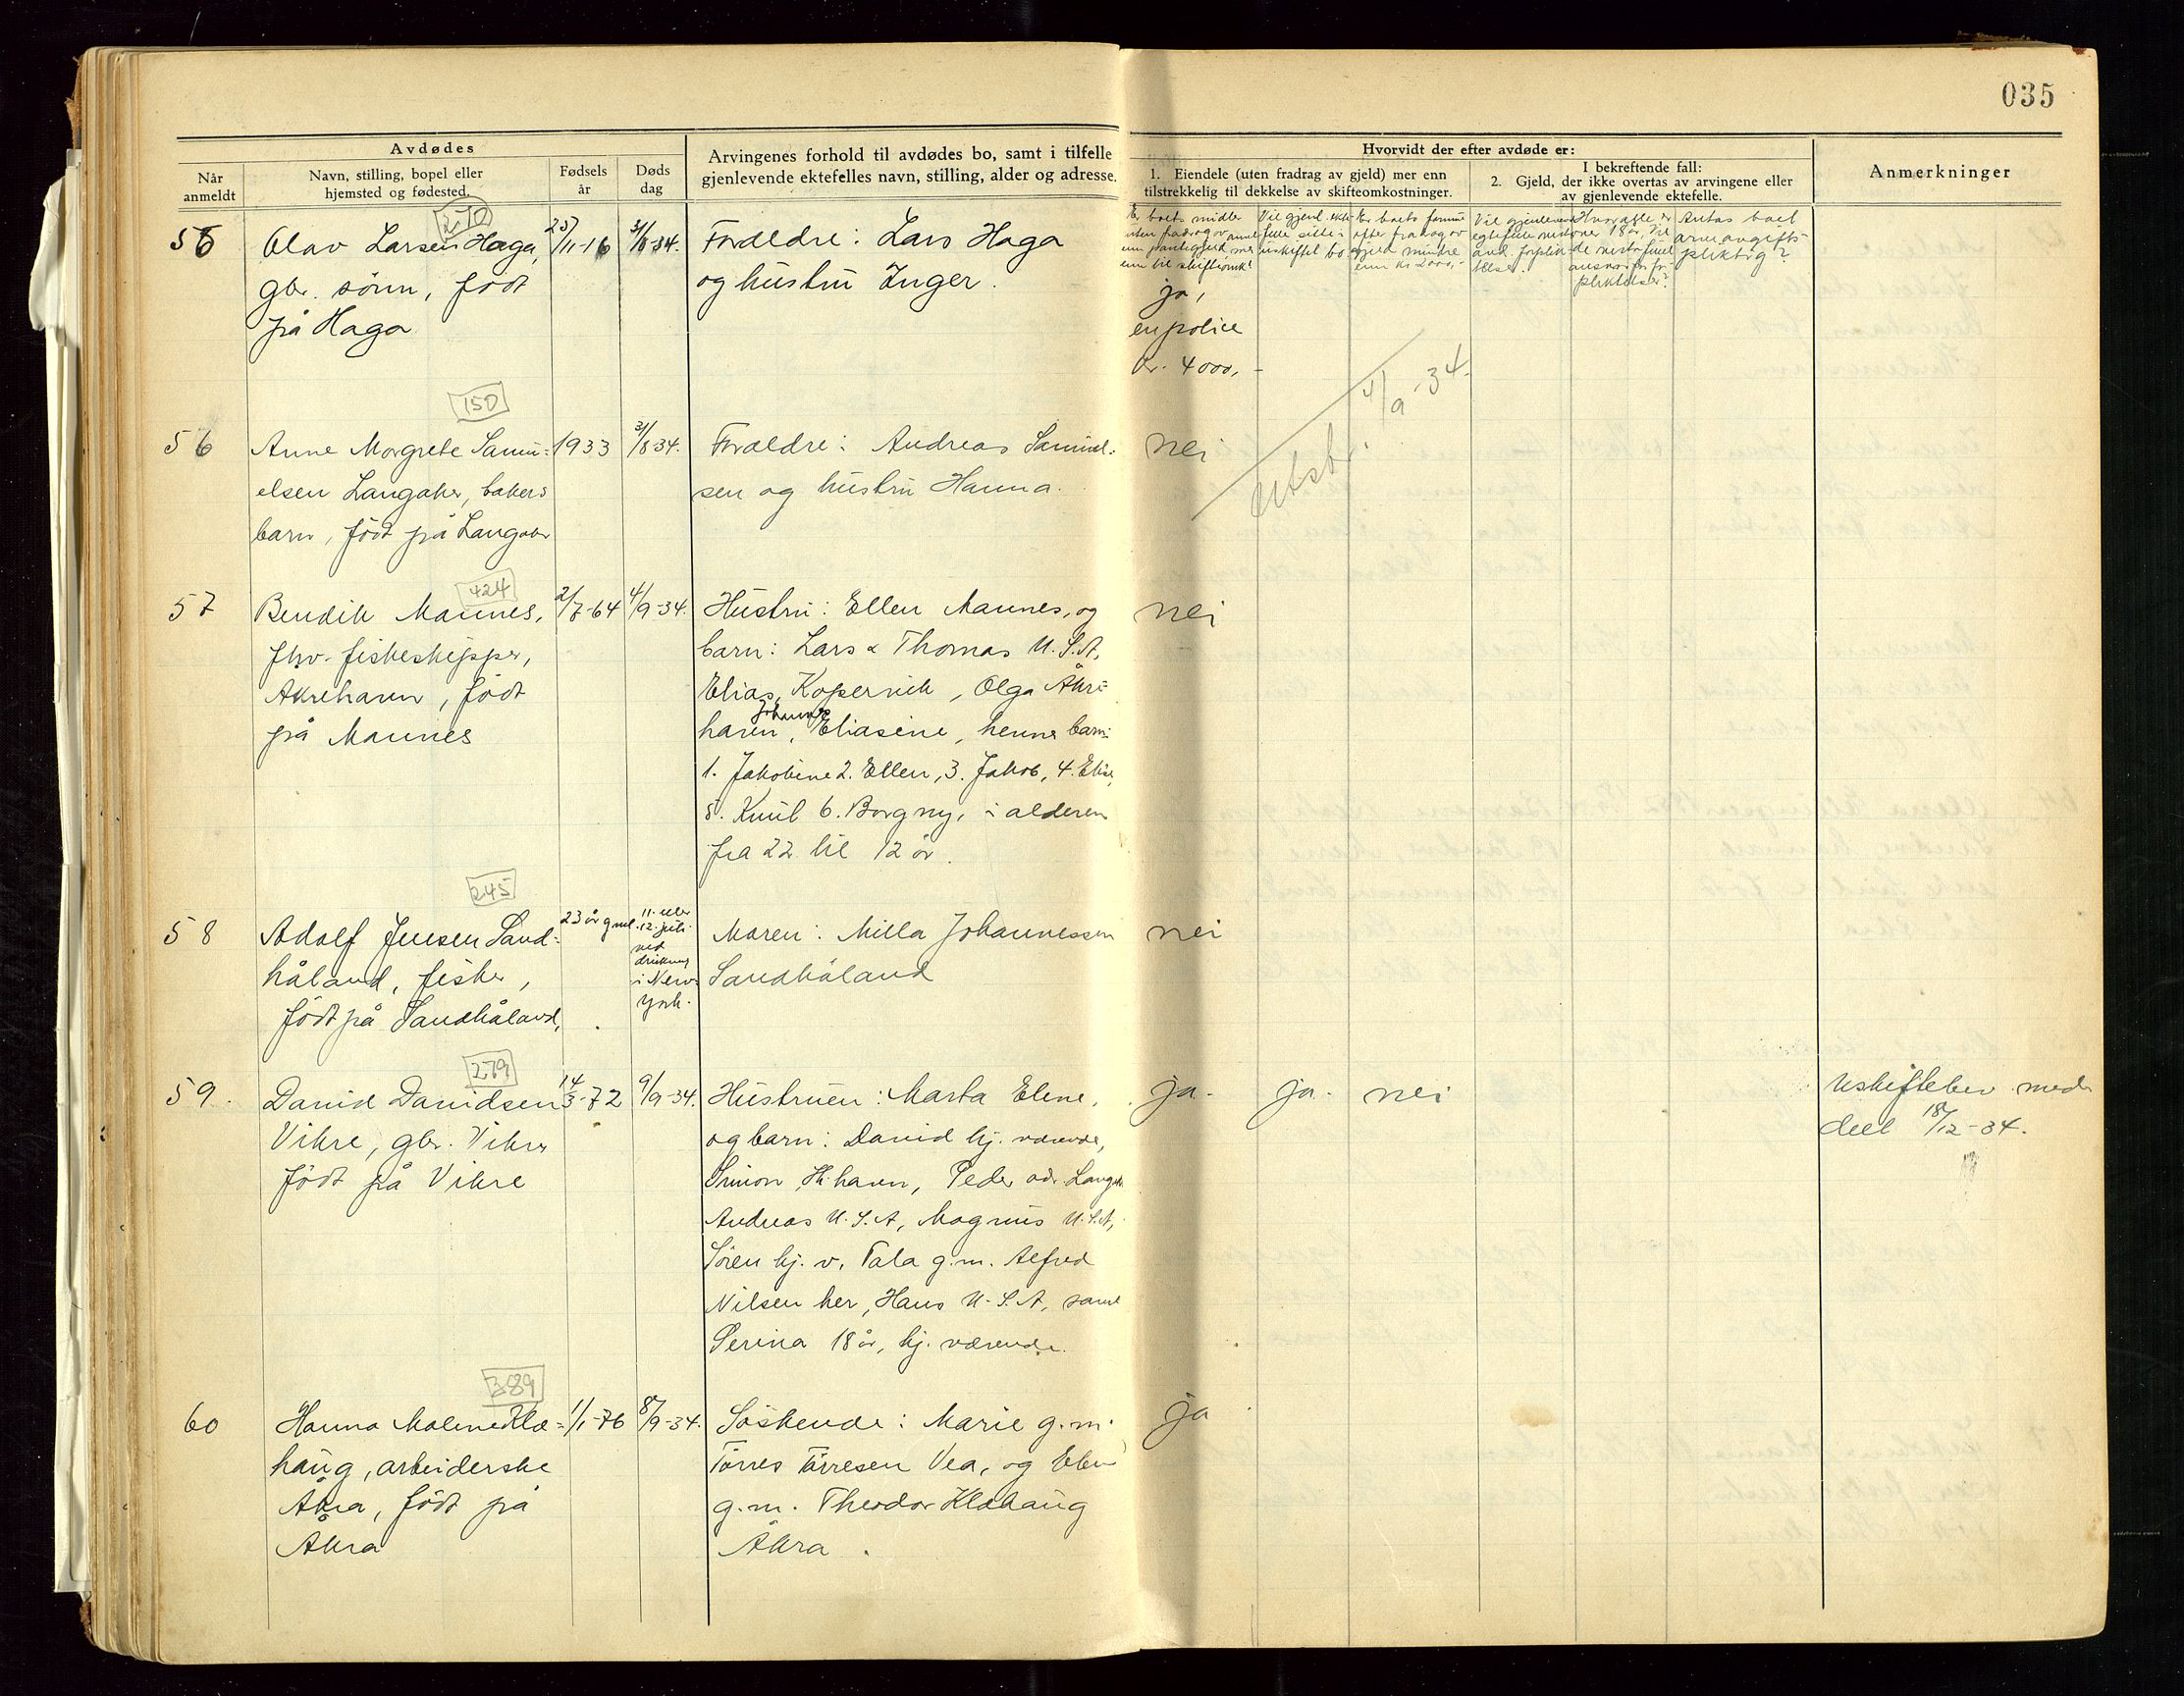 035
Avdødes
Når anmeldt
Navn, stilling, bopel eller hjemsted og fødested.
Fødsels år
Døds dag
Arvingenes forhold til avdødes bo, samt i tilfelle
gjenlevende ektefelles navn, stilling, alder og adresse.
Hvorvidt der efter avdøde er:
1. Eiendele (uten fradrag av gjeld) mer enn
tilstrekkelig til dekkelse av skifteomkostninger.
I bekreftende fall:
2. Gjeld, der ikke overtas av arvingene eller
av gjenlevende ektefelle.
Anmerkninger
Er boets midler
uten fradrag av
enn pantegjeld mer
enn til skifteomk?
Vil gjenl. ekte-
felle sitte i
uskiftet bo
Er boets formue
efter fradrag av
gjeld mindre
enn kr 2000,-
Vil gjenlevende
egtefelle
Hvor alle er
over 18 år, vil
Antas boet
arveavgifts-
pliktig?
270
55
Olav Larsen Haga,
gbr. sönn, født
på Haga
25/11-16
31/8-34.
Foreldre: Lars Haga
og hustru Inger.
ja,
en police
kr. 4000,-
Utsbr. 4/9-34.
150
56
Anne Margrete Samu-
elsen Langaker, bakers
barn, født på Langaker
1933
31/8-34.
Foreldre: Andreas Samuel-
sen og hustru Hanna.
nei
424
57
Bendik Mannes,
fhv. fiskeskipper,
Åkrehavn, født
på Mannes
2/7-64
4/9-34.
Hustru: Ellen Mannes, og
barn: Lars & Thomas U.S.A,
Elias, Kopervik, Olga Åkre-
havn, Johannes Eliasine, hennes barn:
1. Jakobine 2. Ellen, 3. Jakob, 4. Elise,
5. Knut 6. Borgny, i alderen
fra 22 til 12 år.
nei
245
58
Adolf Jensen Sand-
håland, fisker,
født på Sandhåland,
23 år gml.
11. eller
12. juli
ved
drukning
i New
York.
Moren: Milla Johannessen
Sandhåland
nei
279
59.
David Davidsen
Vikre, gbr. Vikre
født på Vikre
14/3-72
9/9-34.
Hustruen: Marta Elene,
og barn: David hj. værende,
Simon, H.havn, Peder adr. Langåk
Andreas U.S.A, Magnus U.S.A,
Sören hj. v, Tala g.m. Alfred
Nilsen her, Hans U.S.A, samt
Serina 18 år, hj. værende.
ja.
ja.
nei
Uskiftebev. med-
delt 18/12-34.
389
60
Hanna Malene Kla-
haug, arbeiderske
Åkra, født på
Åkra
1/1-76
8/9-34.
Söskende: Marie g.m.
Törres Törresen Vea, og Elen
g.m. Theodor Klahaug
Åkra.
ja